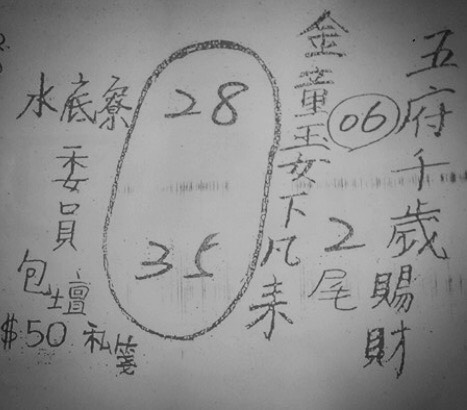 五府千歲賜財
06
2尾
金童玉女下凡來
28
35
水底寮
委員
包壇
$50 私箋